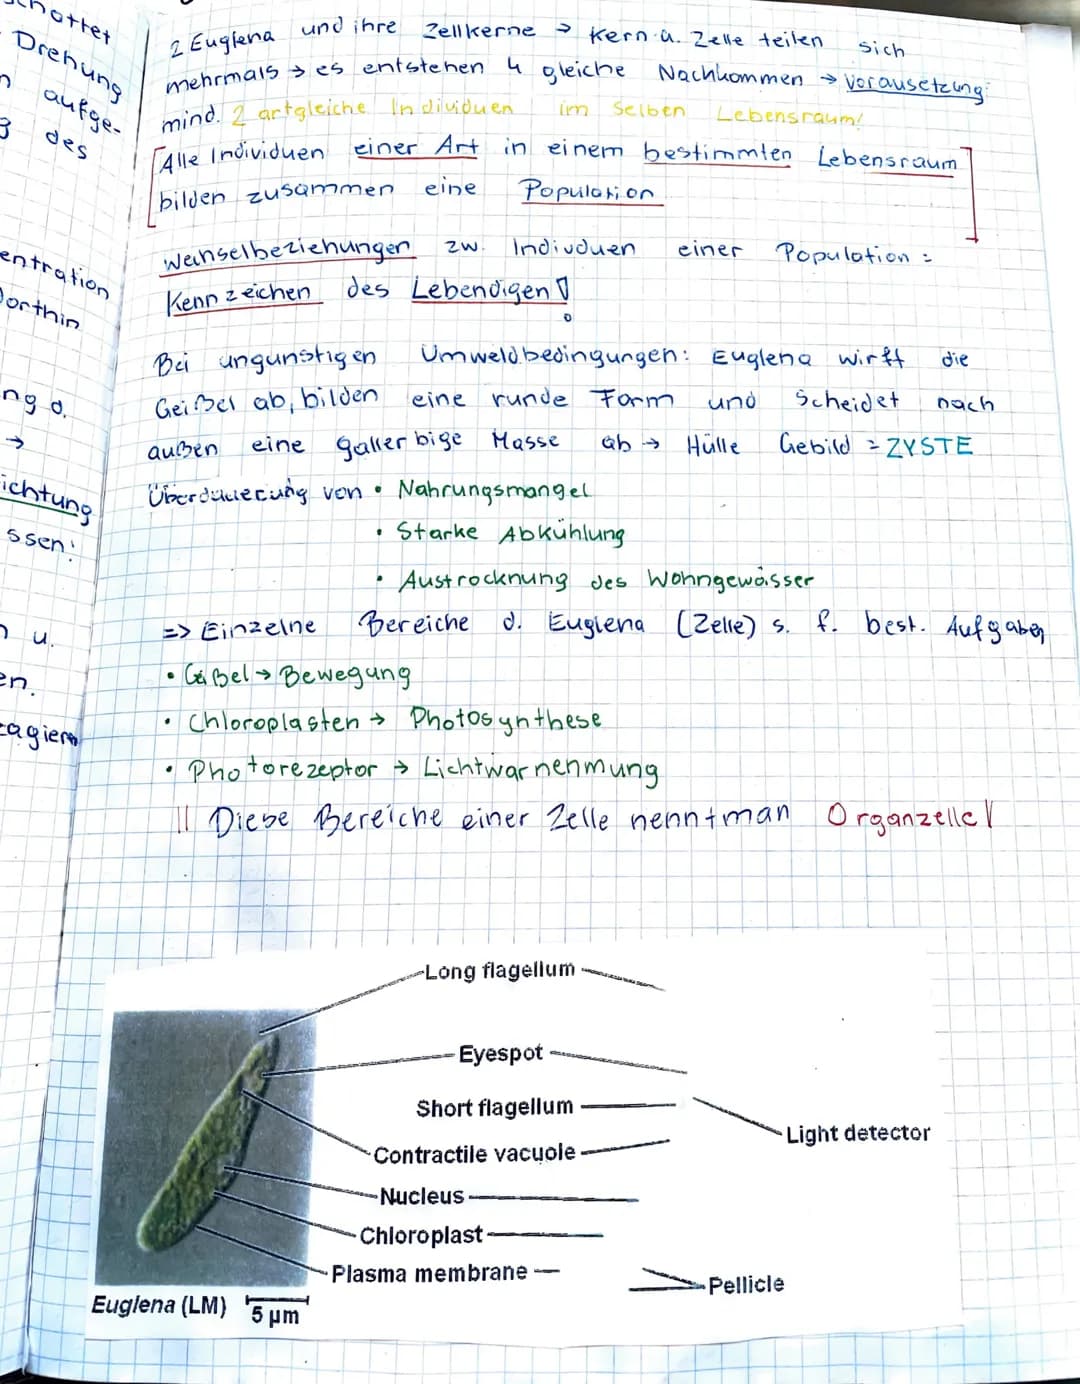 chottet
Drehung
aufge-
des
entration
dorthin
ng d.
→
ichtung
ssen!
u.
en.
eagieren
2 Euglena und ihre Zellkerne → Kern u. Zelle teilen sich
mehrmals → es entstehen 4 gleiche Nachkommen → Vorausetzung:
mind. 2 artgleiche Individuen im selben Lebensraum!
Alle Individuen einer Art in einem bestimmten Lebensraum
bilden zusammen eine Population
Wechselbeziehungen zw. Indivduen einer Population =
Kennzeichen des Lebendigen!
Bei ungünstigen Umweldbedingungen: Euglena wirft die
Geißel ab, bilden eine runde Form und Scheidet nach
außen eine gallerbige Masse ab → Hülle Gebild = ZYSTE
Überdauerung von • Nahrungsmangel
• Starke Abkühlung
• Austrocknung des Wohngewässer
=> Einzelne Bereiche d. Euglena (Zelle) s. f. best. Aufgaben
• Geißel → Bewegung
• Chloroplasten → Photosynthese
• Photorezeptor → Lichtwarnehmung
|| Diese Bereiche einer Zelle nennt man Organzelle!
Long flagellum
Eyespot
Short flagellum
Light detector
Contractile vacuole
Nucleus
Chloroplast
Plasma membrane
Pellicle
Euglena (LM) 5 µm